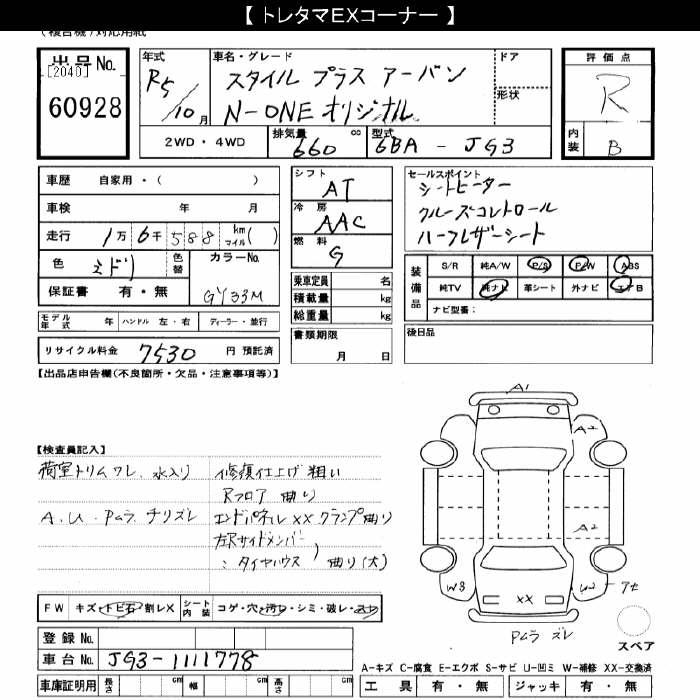 【 トレタマEXコーナー 】
(複合機)対応用紙
出品No.
[2040]
60928
年式
R5/10月
車名・グレード
スタイル プラス アーバン
N-ONE オリジナル
ドア
形状
評価点
R
内装
B
2WD・4WD
排気量
660 cc
型式
6BA - JG3
車歴 自家用・( )
車検 年 月
走行 1万 6千 588 km マイル ( )
色 ミドリ 色替 カラーNo.
GY33M
保証書 有・無
モデル年式 年 ハンドル 左・右 ディーラー・並行
リサイクル料金 7530 円 預託済
シフト
AT
冷房
AAC
燃料
G
乗車定員 名
積載量 kg
総重量 kg
書類期限
月 日
セールスポイント
シートヒーター
クルーズコントロール
ハーフレザーシート
装備品
S/R 純A/W P/S P/W ABS
純TV 純ナビ 革シート 外ナビ エアB
ナビ型番:
後日品
【出品店申告欄(不良箇所・欠品・注意事項等)】
【検査員記入】
荷室トリムワレ、水入り
A、U、Pムラ、チリズレ
修復仕上げ粗い
Rフロア 曲り
エンドパネル XX クランプ曲り
左Rサイドメンバー
: タイヤハウス ) 曲り(大)
A1
A2
A2
W3
XX
Pムラ ズレ
スペア
FW キズ・トビ石・割レX シート内装 コゲ・穴・汚レ・シミ・破レ・スレ
登録No.
車台No. JG3-1111778
車庫証明用 長さ cm 幅 cm 高さ cm
A-キズ C-腐食 E-エクボ S-サビ U-凹ミ W-補修 XX-交換済
工具 有・無 ジャッキ 有・無